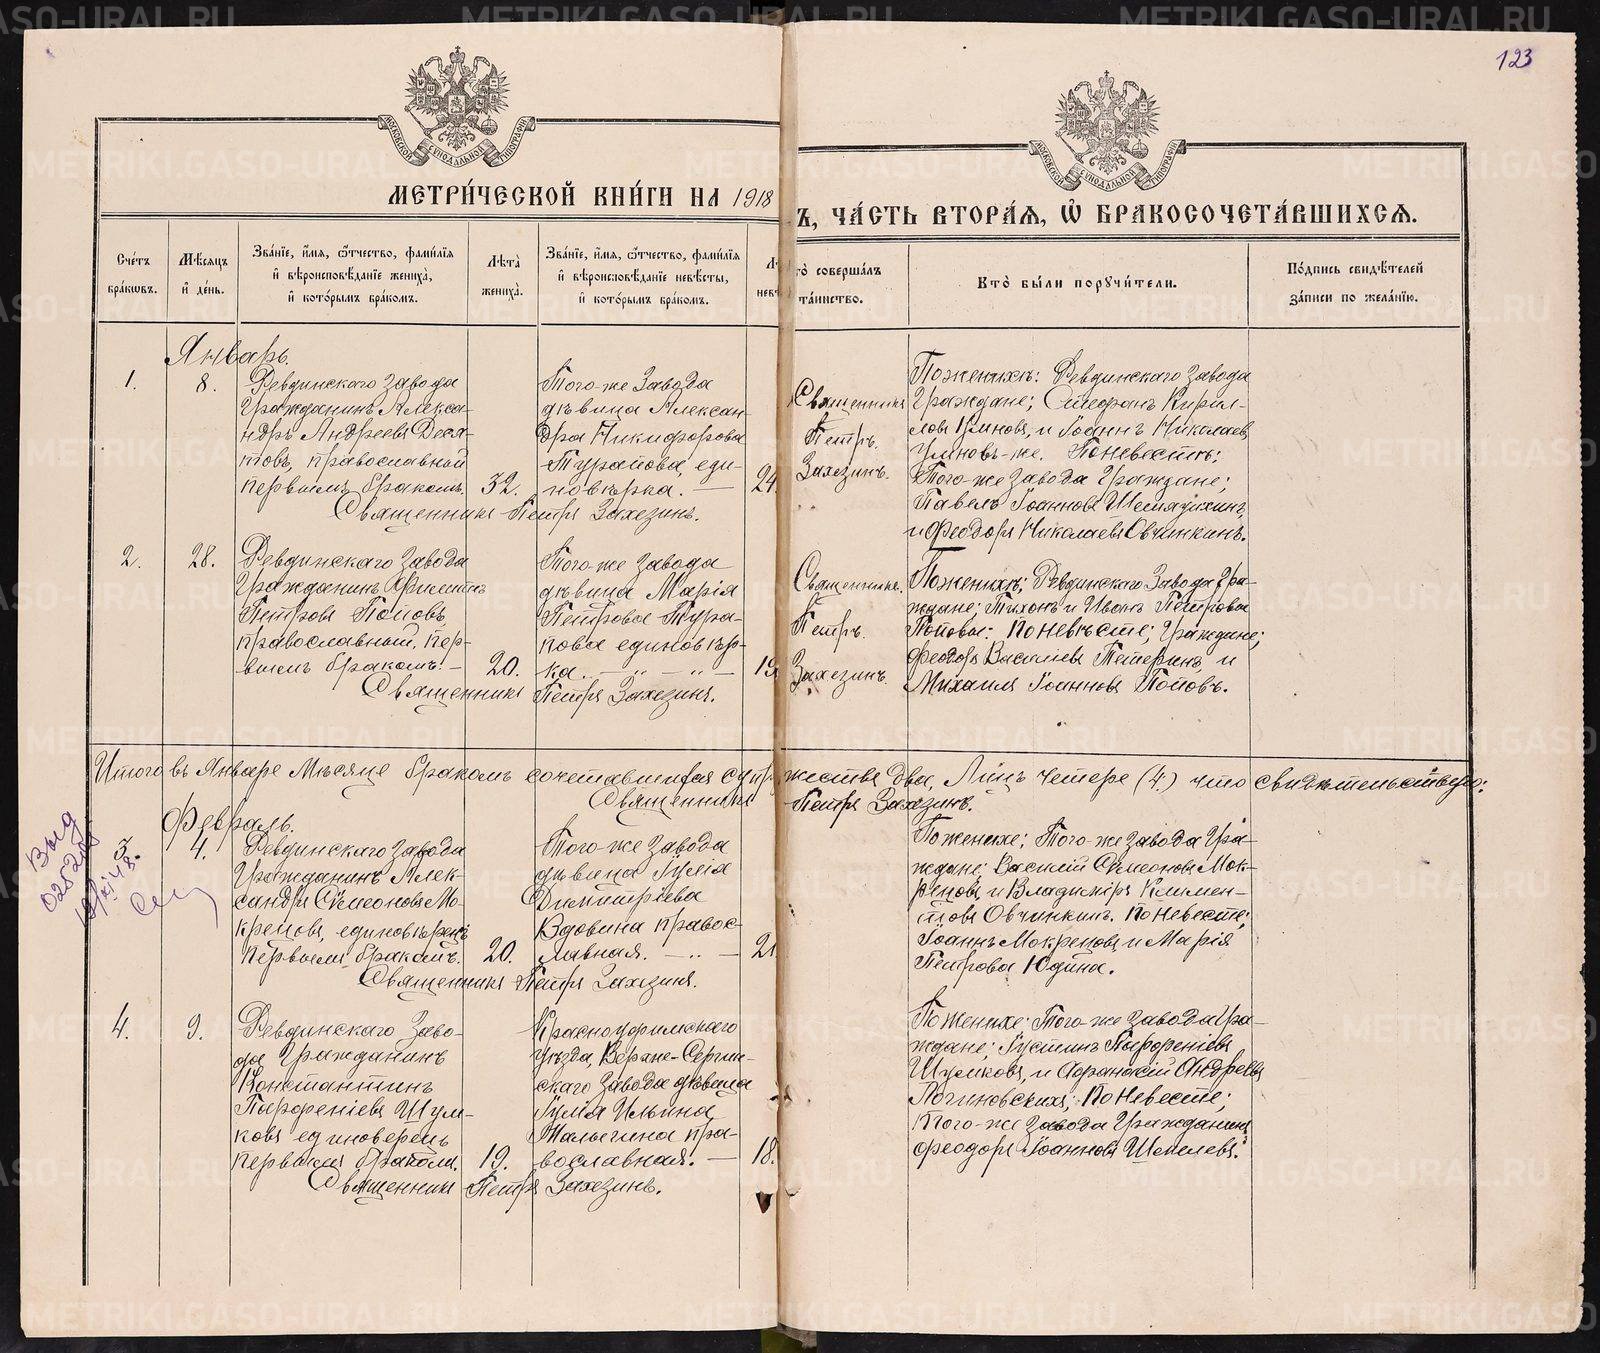 123
МОСКОВСКОЙ СѴНОДАЛЬНОЙ ТИПОГРАФІИ
МОСКОВСКОЙ СѴНОДАЛЬНОЙ ТИПОГРАФІИ
МЕТРИ́ЧЕСКОЙ КНИ́ГИ НА 1918
Ъ, ЧА́СТЬ ВТОРА́Я, Ѿ БРАКОСОЧЕТА́ВШИХСЯ.
Сче́тъ бра́кѡвъ.
Мѣ́сяцъ и҆ де́нь.
Зва́нїе, и҆́мя, ѻ҆́тчество, фами́лїя и҆ вѣроисповѣ́данїе жениха̀, и҆ кото́рымъ бра́комъ.
Лѣта̀ жениха̀.
Зва́нїе, и҆́мя, ѻ҆́тчество, фами́лїя и҆ вѣроисповѣ́данїе невѣ́сты, и҆ кото́рымъ бра́комъ.
Лѣ
невѣ
то̀ соверша́лъ
та́инство.
Кто̀ бы́ли порꙋчи́тели.
По́дпись свидѣ́телей за́писи по жела́нїю.
Январь.
1.
8.
Ревдинскаго завода
Гражданинъ Алекса-
ндръ Андреевъ Деся-
товъ, православный
первымъ бракомъ.
32.
Того-же Завода
дѣвица Алексан-
дра Никифорова
Турапова, еди-
новѣрка. —
24
Священникъ Петръ Захезинъ.
Священникъ
Петръ.
Захезинъ.
Поженихѣ: Ревдинскаго Завода
Граждане; Стефанъ Кирил-
ловъ Умновъ, и Іоаннъ Николаевъ
Умновъ-же. Поневестѣ;
Того-же Завода Граждане;
Павелъ Іоанновъ
и Феодоръ Николаевъ Овчинкинъ.
2.
28.
Ревдинскаго Завода
Гражданинъ
Петровъ Поповъ,
православный, пер-
вымъ бракомъ. —
20.
Того-же завода
дѣвица Марія
Петрова Тура-
пова единовѣр-
ка. — „ — „ —
19
Священникъ Петръ Захезинъ.
Священникъ.
Петръ.
Захезинъ.
Поженихѣ; Ревдинскаго Завода Гра-
ждане; Тихонъ и Иванъ Петровы
Поповы: Поневѣсте; Граждане;
Феодоръ Василіевъ Петеринъ, и
Михаилъ Іоанновъ Поповъ.
Итого въ Январе Мѣсяце бракомъ сочетавшихся супр жества два, Лицъ четере (4.) что свидѣтельствую:
Священникъ Петръ Захезинъ.
Февраль.
Выд
02520
3.
4.
Ревдинскаго Завода
Гражданинъ Алек-
сандръ Сѵмеоновъ Мо-
крецовъ, единовѣрецъ
первымъ бракомъ.
20.
Того-же Завода
дѣвица Іулія
Димитріева
Вдовина правос-
лавная. — „ —
21
Священникъ Петръ Захезинъ.
Поженихе; Того-же завода Гра-
ждане; Василій Сѵмеоновъ Мок-
рецовъ, и Владимиръ Климен-
товъ Овчинкинъ. Поневесте;
Іоаннъ Мокрецовъ, и Марія
Петрова Юдина.
4.
9.
Ревдинскаго Заво-
да Гражданинъ
Константинъ
Парфеніевъ Шум-
ковъ единоверецъ
первымъ бракомъ.
19.
Красноуфимскаго
уѣзда, Верхне-Сергин-
скаго Завода дѣвица
Іулія Ильина
Малыгина пра-
вославная. —
18.
Священникъ Петръ Захезинъ.
Поженихе: Того-же завода Гра-
ждане; Іустинъ Парфеніевъ
Шумковъ, и Афанасій Андреевъ
Логиновскихъ; Поневесте;
Того-же завода Гражданинъ
Феодоръ Іоанновъ Шемелевъ.
METRIKI.GASO-URAL.RU